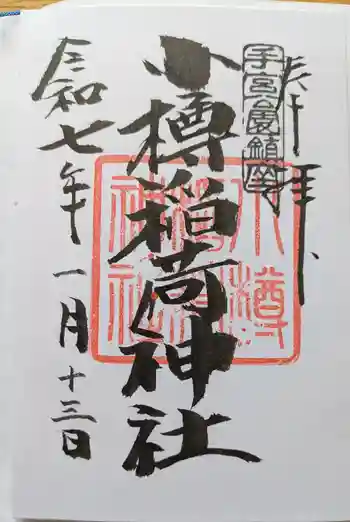 奉拝
手宮裏鎮座
小樽稲荷神社
小樽稲荷神社
令和七年一月十三日